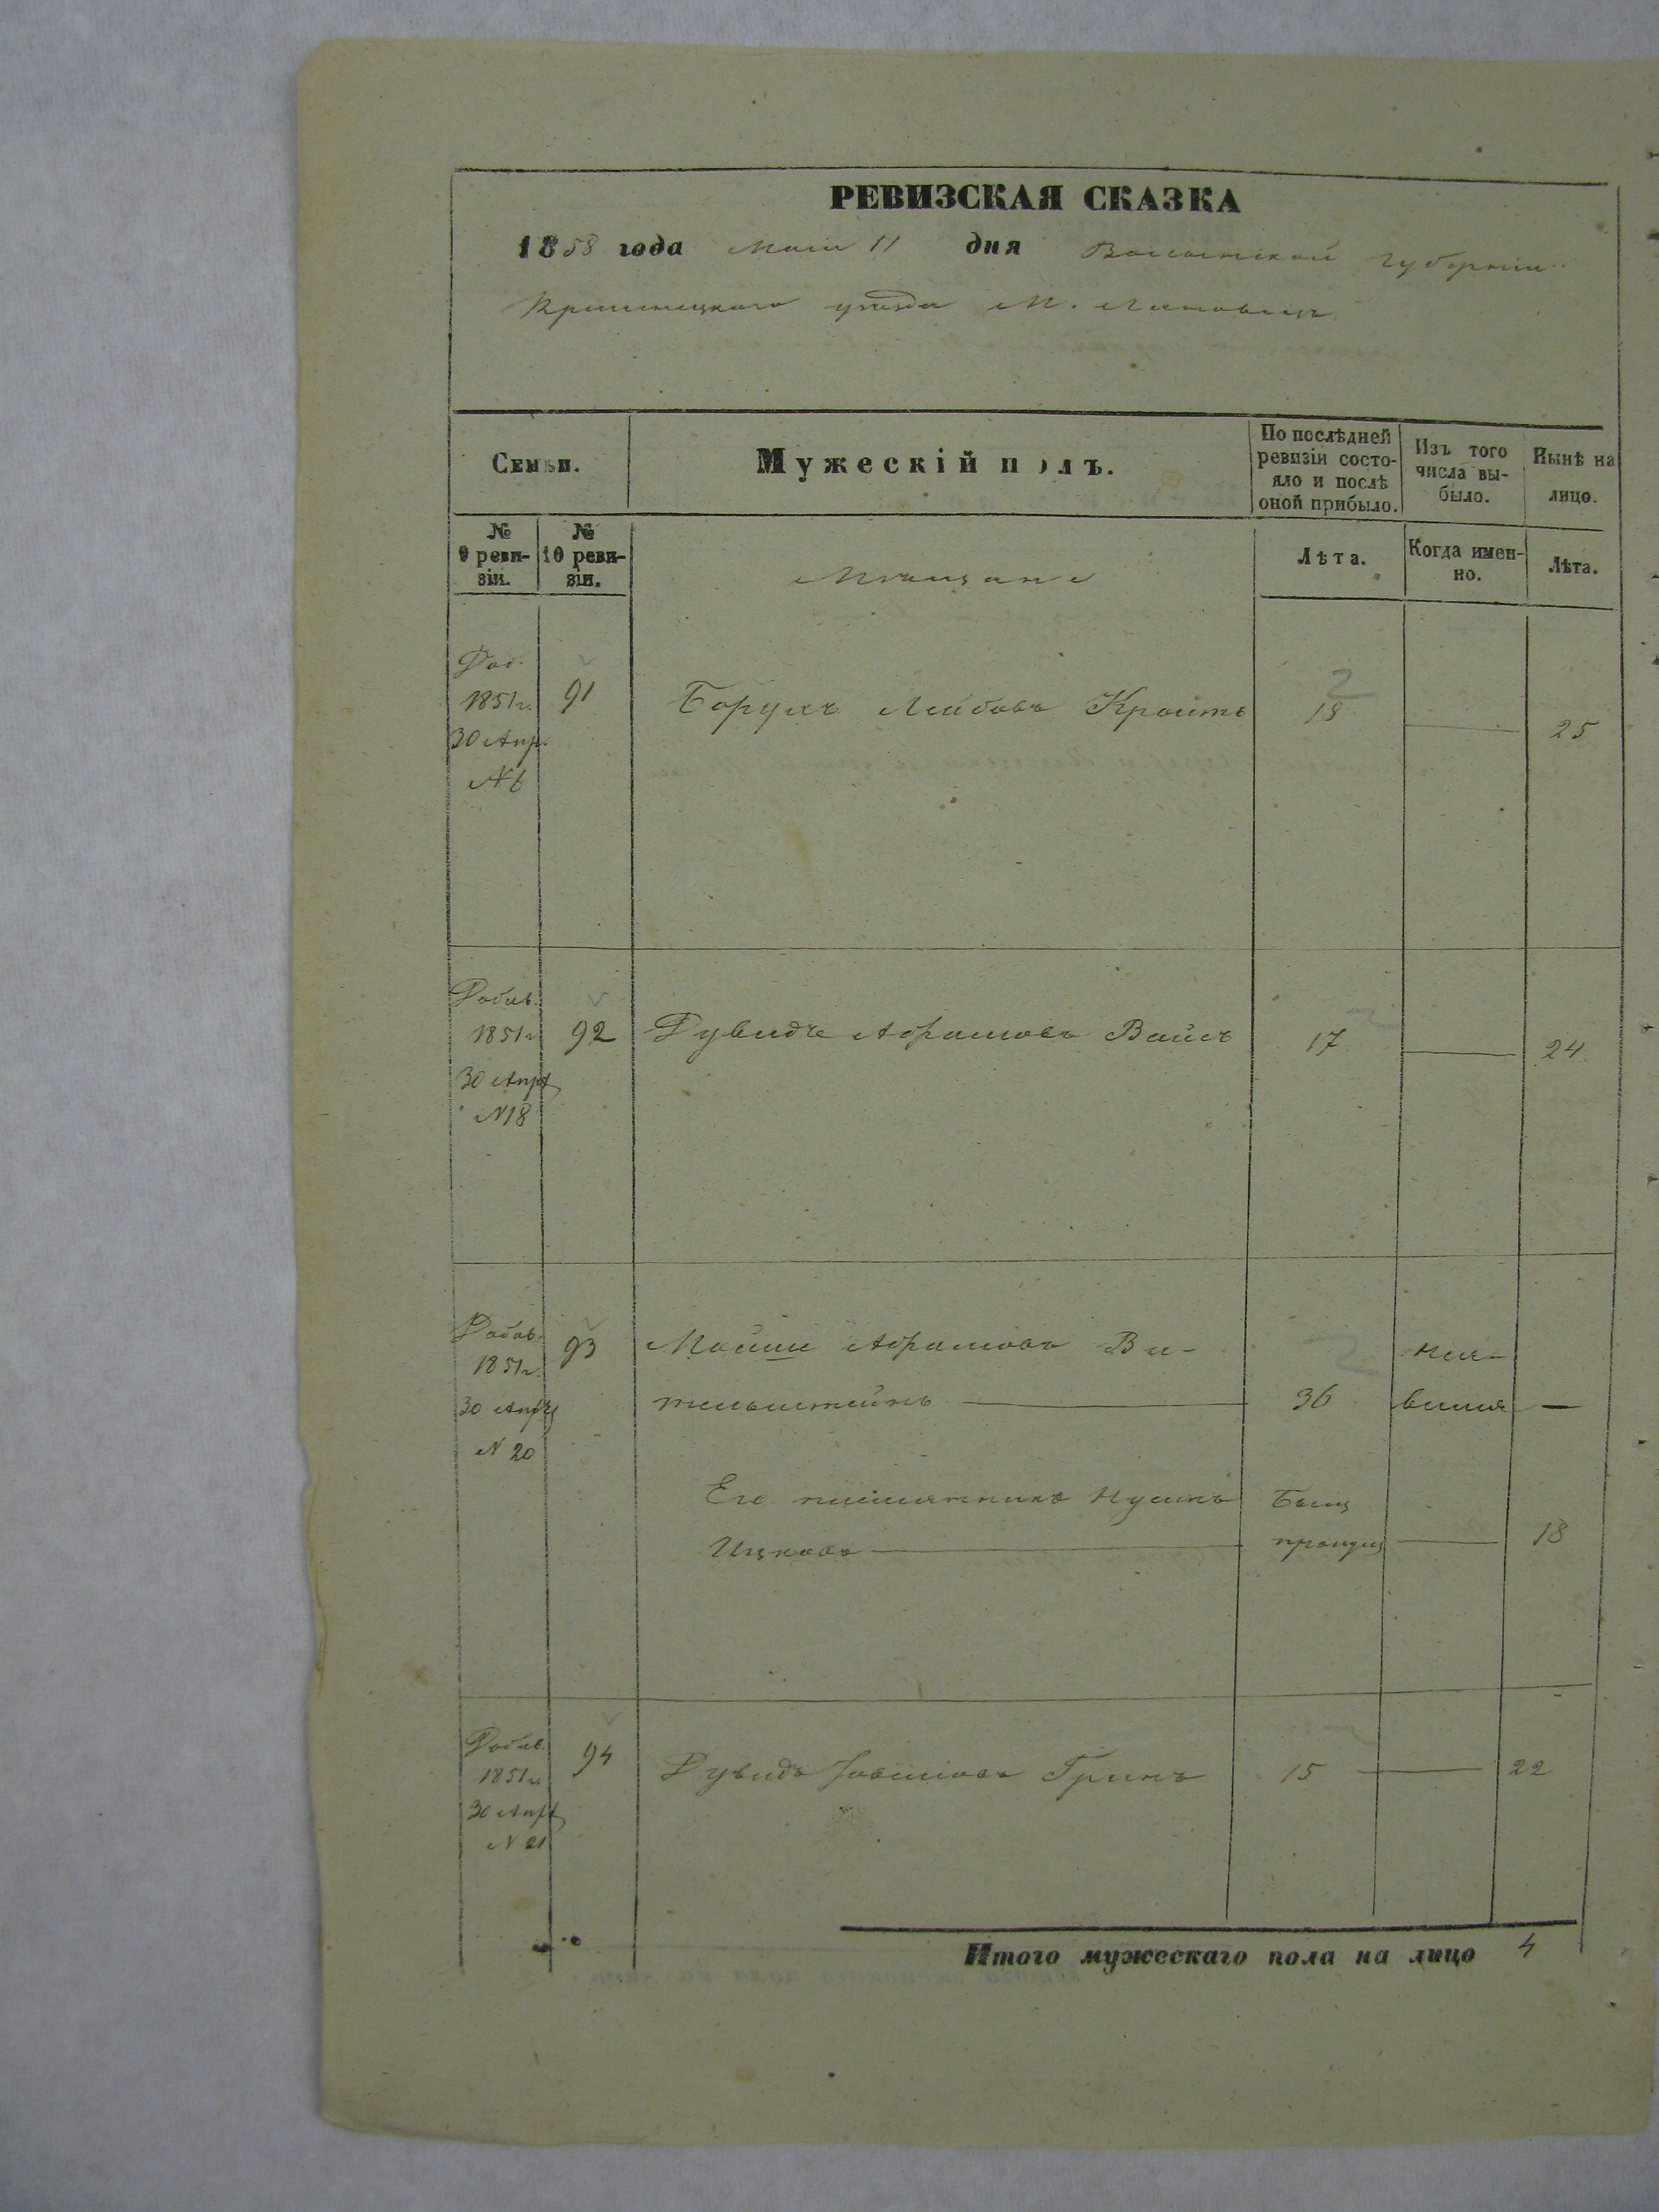 РЕВИЗСКАЯ СКАЗКА
1858 года Маія 11 дня Волынской губерніи
Кременецкаго уѣзда М. Ляховецъ
Семьи.
Мужескій полъ.
По послѣдней ревизіи состо-
яло и послѣ
оной прибыло.
Изъ того
числа вы-
было.
Нынѣ на
лицо.
№
9 реви-
зіи.
№
10 реви-
зіи.
Мѣщане
Лѣта.
Когда имен-
но.
Лѣта.
Доб.
1851г.
30 Апр.
№ 6
91
Борухъ Лейбовъ
18
25
Добав.
1851г
30 Апр
N18
92
Дувидъ Абрамовъ Вайсъ
17
24
Добав.
1851г.
30 Апр
N 20
93
Мошко Абрамовъ Ви-
тельштейнъ
36
нея-
вился
Его племянникъ
Ицковъ
Былъ
пропущ
18
Добав.
1851г.
30 Апр
N 21
94
Дувидъ Гринъ
15
22
Итого мужескаго пола на лицо 4